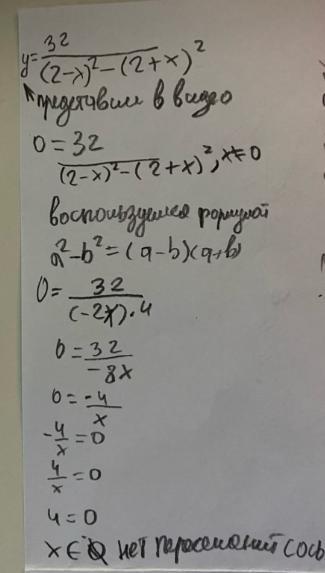 y = 32 / ((2-x)² - (2+x)²)
представим в видо
0 = 32 / ((2-x)² - (2+x)²), x≠0
воспользуемся формулой
a² - b² = (a-b)(a+b)
0 = 32 / ((-2x)·4)
0 = 32 / -8x
0 = -4 / x
-4/x = 0
4/x = 0
4 = 0
x ∈ нет пересечений с осью